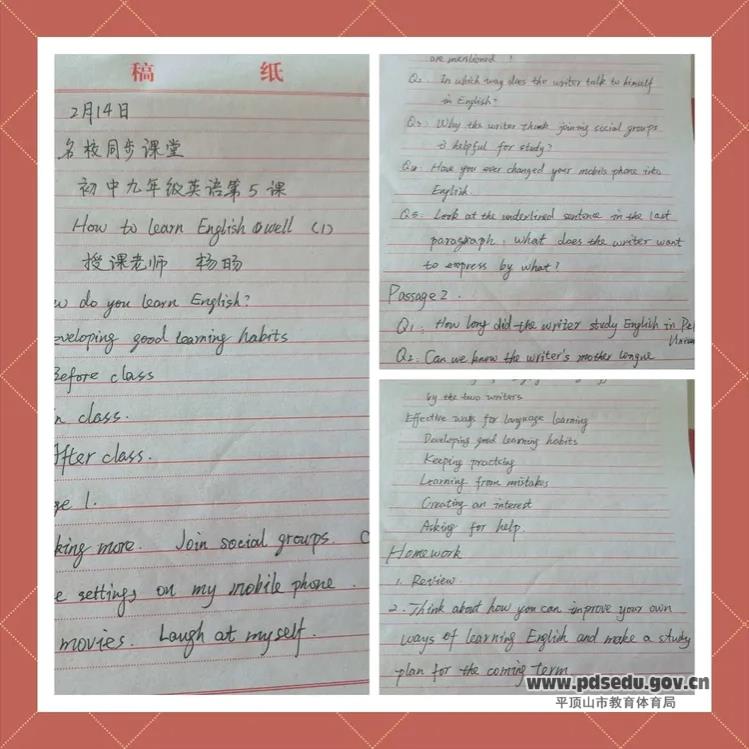 稿 纸
2月14日
名校同步课堂
初中九年级英语第5课
How to learn English well (1)
授课老师 杨旸
w do you learn English?
eveloping good learning habits
Before class
n class.
After class.
ge 1.
king more. Join social groups. C
e settings on my mobile phone.
movies. Laugh at myself.
are mentioned?
Q2: In which way does the writer talk to himself
in English?
Q3: Why the writer think joining social groups
is helpful for study?
Q4: Have you ever changed your mobile phone into
English.
Q5: Look at the underlined sentence in the last
paragraph, what does the writer want
to express by what?
Passage 2.
Q1: How long did the writer study English in Pe
Univer
Q2: Can we know the writer's mother tongue
by the two writers
Effective ways for language learning
Developing good learning habits
Keeping practcing
Learning from mistakes
Creating an interest
Asking for help.
Homework
1. Review.
2. Think about how you can improve your own
ways of learning English and make a study
plan for the coming term
www.pdsedu.gov.cn
平顶山市教育体育局